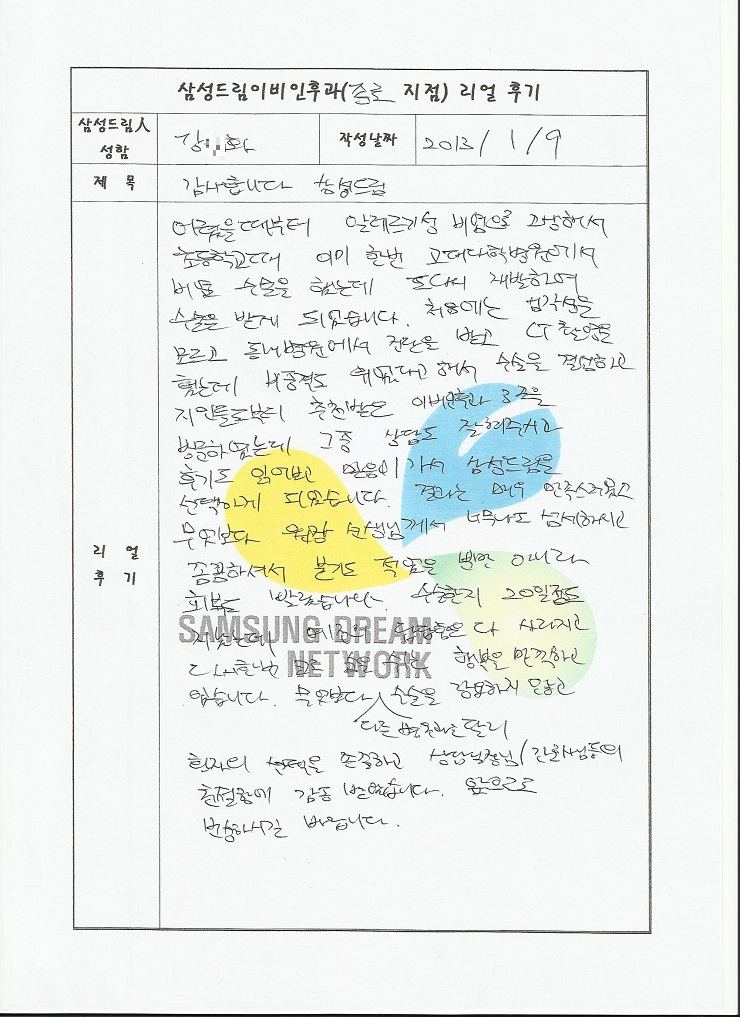 삼성드림이비인후과(종로 지점) 리얼 후기
삼성드림人 성함
김 화
작성날짜
2013/1/9
제 목
감사합니다 삼성드림
리 얼 후 기
어렸을때부터 알레르기성 비염으로 고생해서
초등학교때 이미 한번 고대대학병원에서
비염 수술을 했는데 또다시 재발하여
수술을 받게 되었습니다. 처음에는 심각성을
모르고 동네병원에서 진단을 받고 CT 촬영을
했는데 해서 수술을 결심하고
지인들로부터 추천받은 이비인후과 3곳을
방문하였는데 그중 상담도 잘해주시고
후기도 읽어보고 믿음이 가서 삼성드림을
선택하게 되었습니다. 결과는 매우 만족스러웠고
무엇보다 원장 선생님께서 너무나도 섬세하시고
꼼꼼하셔서 붓기도 적었을 뿐만 아니라
회복도 빨랐습니다. 수술한지 20일정도
지났는데 예전의 답답함은 다 사라지고
쉬는 행복을 만끽하고
있습니다. 무엇보다 수술을 강요하지 않고
다른 병원과는 달리
환자의 선택을 존중하고 상담실장님/간호사님들의
친절함에 감동 받았습니다. 앞으로도
번창하시길 바랍니다.
SAMSUNG DREAM
NETWORK